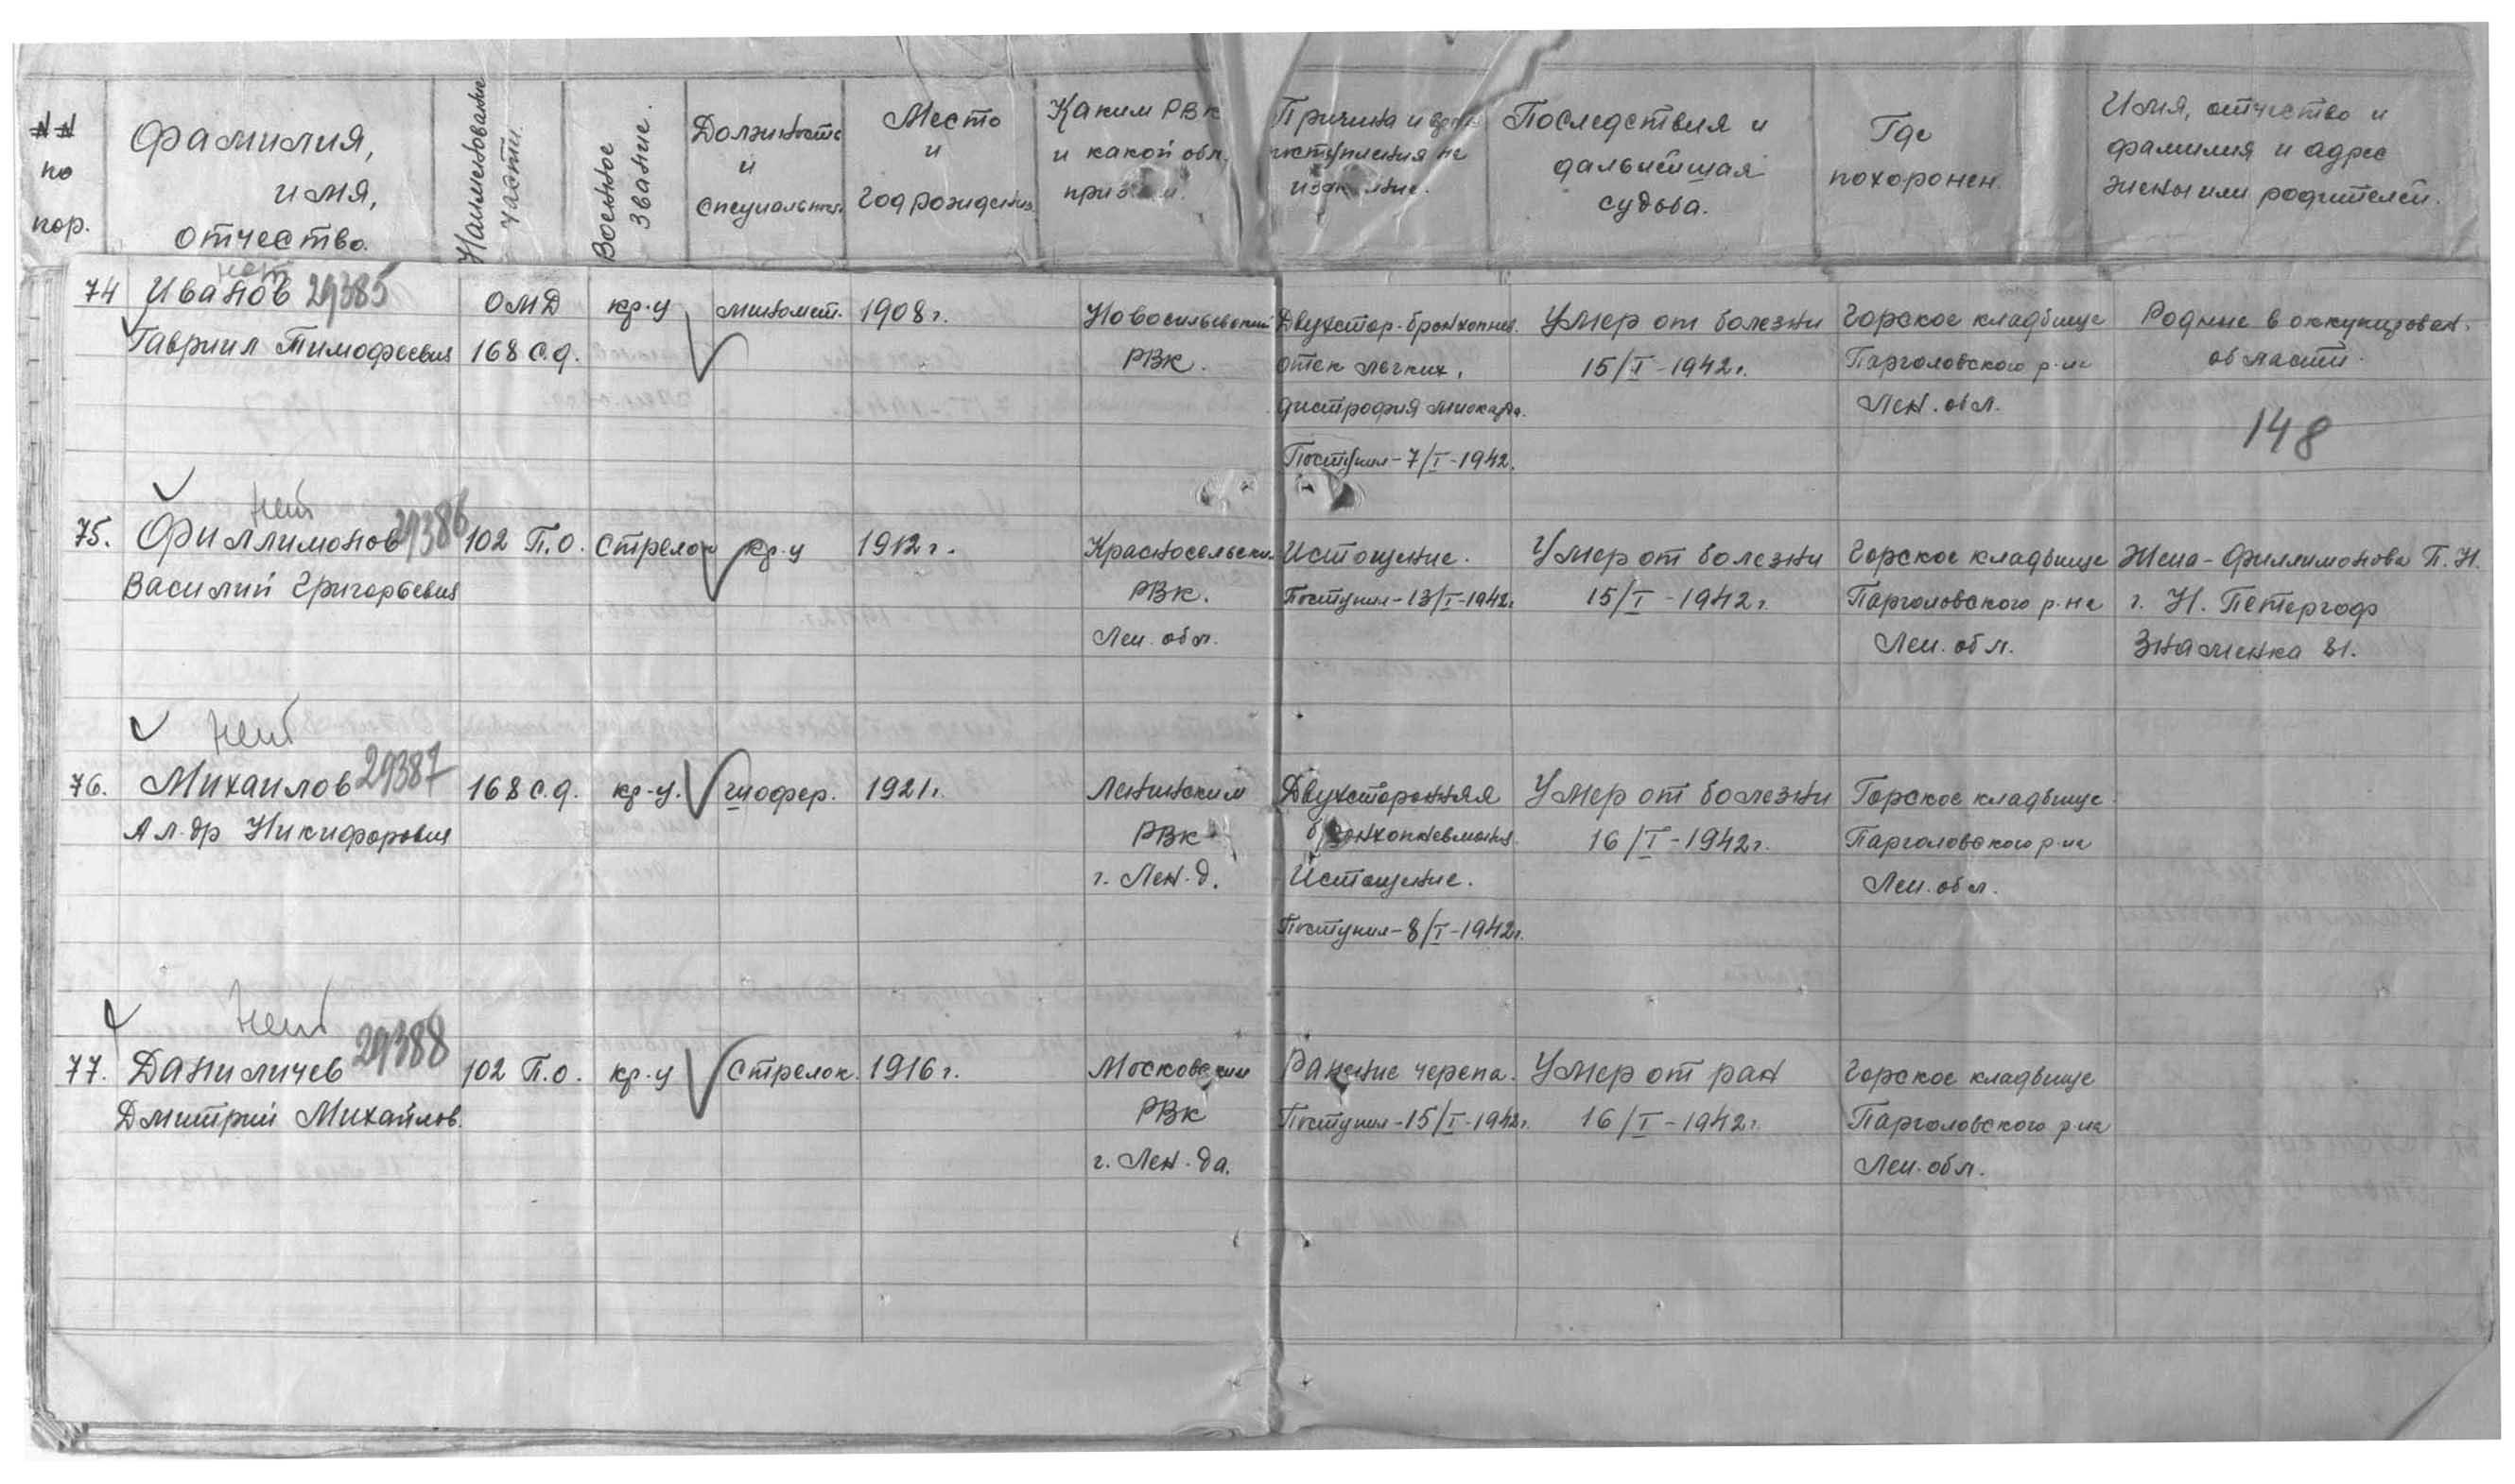 №№ по пор.
Фамилия, имя, отчество.
Наименование части.
Военное звание.
Должность и специальность
Место и год рождения.
Каким РВК и какой обл. призван.
Причина и время поступления на излечение.
Последствия и дальнейшая судьба.
Где похоронен
Имя, отчество и фамилия и адрес жены или родителей.
нет
74 Иванов 29385 ОМД кр-ц миномет. 1908 г. Новосильевский Двухстор. бронхопнев. Умер от болезни Горское кладбище Родные в оккупирован.
Гавриил Тимофеевич 168 с.д. РВК. отек легких, 15/I-1942г. Парголовского р-на области.
дистрофия миокарда. Лен. обл.
148
Поступил-7/I-1942.
нет
75. Филлимонов 29386 102 П.О. Стрелок кр-ц 1912 г. Красносельским Истощение. Умер от болезни Горское кладбище Жена-Филлимонова П.Н.
Василий Григорьевич РВК. Поступил-13/I-1942г. 15/I-1942г. Парголовского р-на г. Н. Петергоф
Лен. обл. Лен. обл. Знаменка 21.
нет
76. Михаилов 29387 168 с.д. кр-ц. шофер. 1921г. Ленинским Двухсторонняя Умер от болезни Горское кладбище
Ал-др Никифорович РВК бронхопневмония. 16/I-1942г. Парголовского р-на
г. Лен-д. Истощение. Лен. обл.
Поступил-8/I-1942г.
нет
77. Даниличев 29388 102 П.О. кр-ц Стрелок. 1916 г. Московским Ранение черепа. Умер от ран Горское кладбище
Дмитрий Михайлов. РВК Поступил-15/I-1942г. 16/I-1942г. Парголовского р-на
г. Лен-да. Лен. обл.